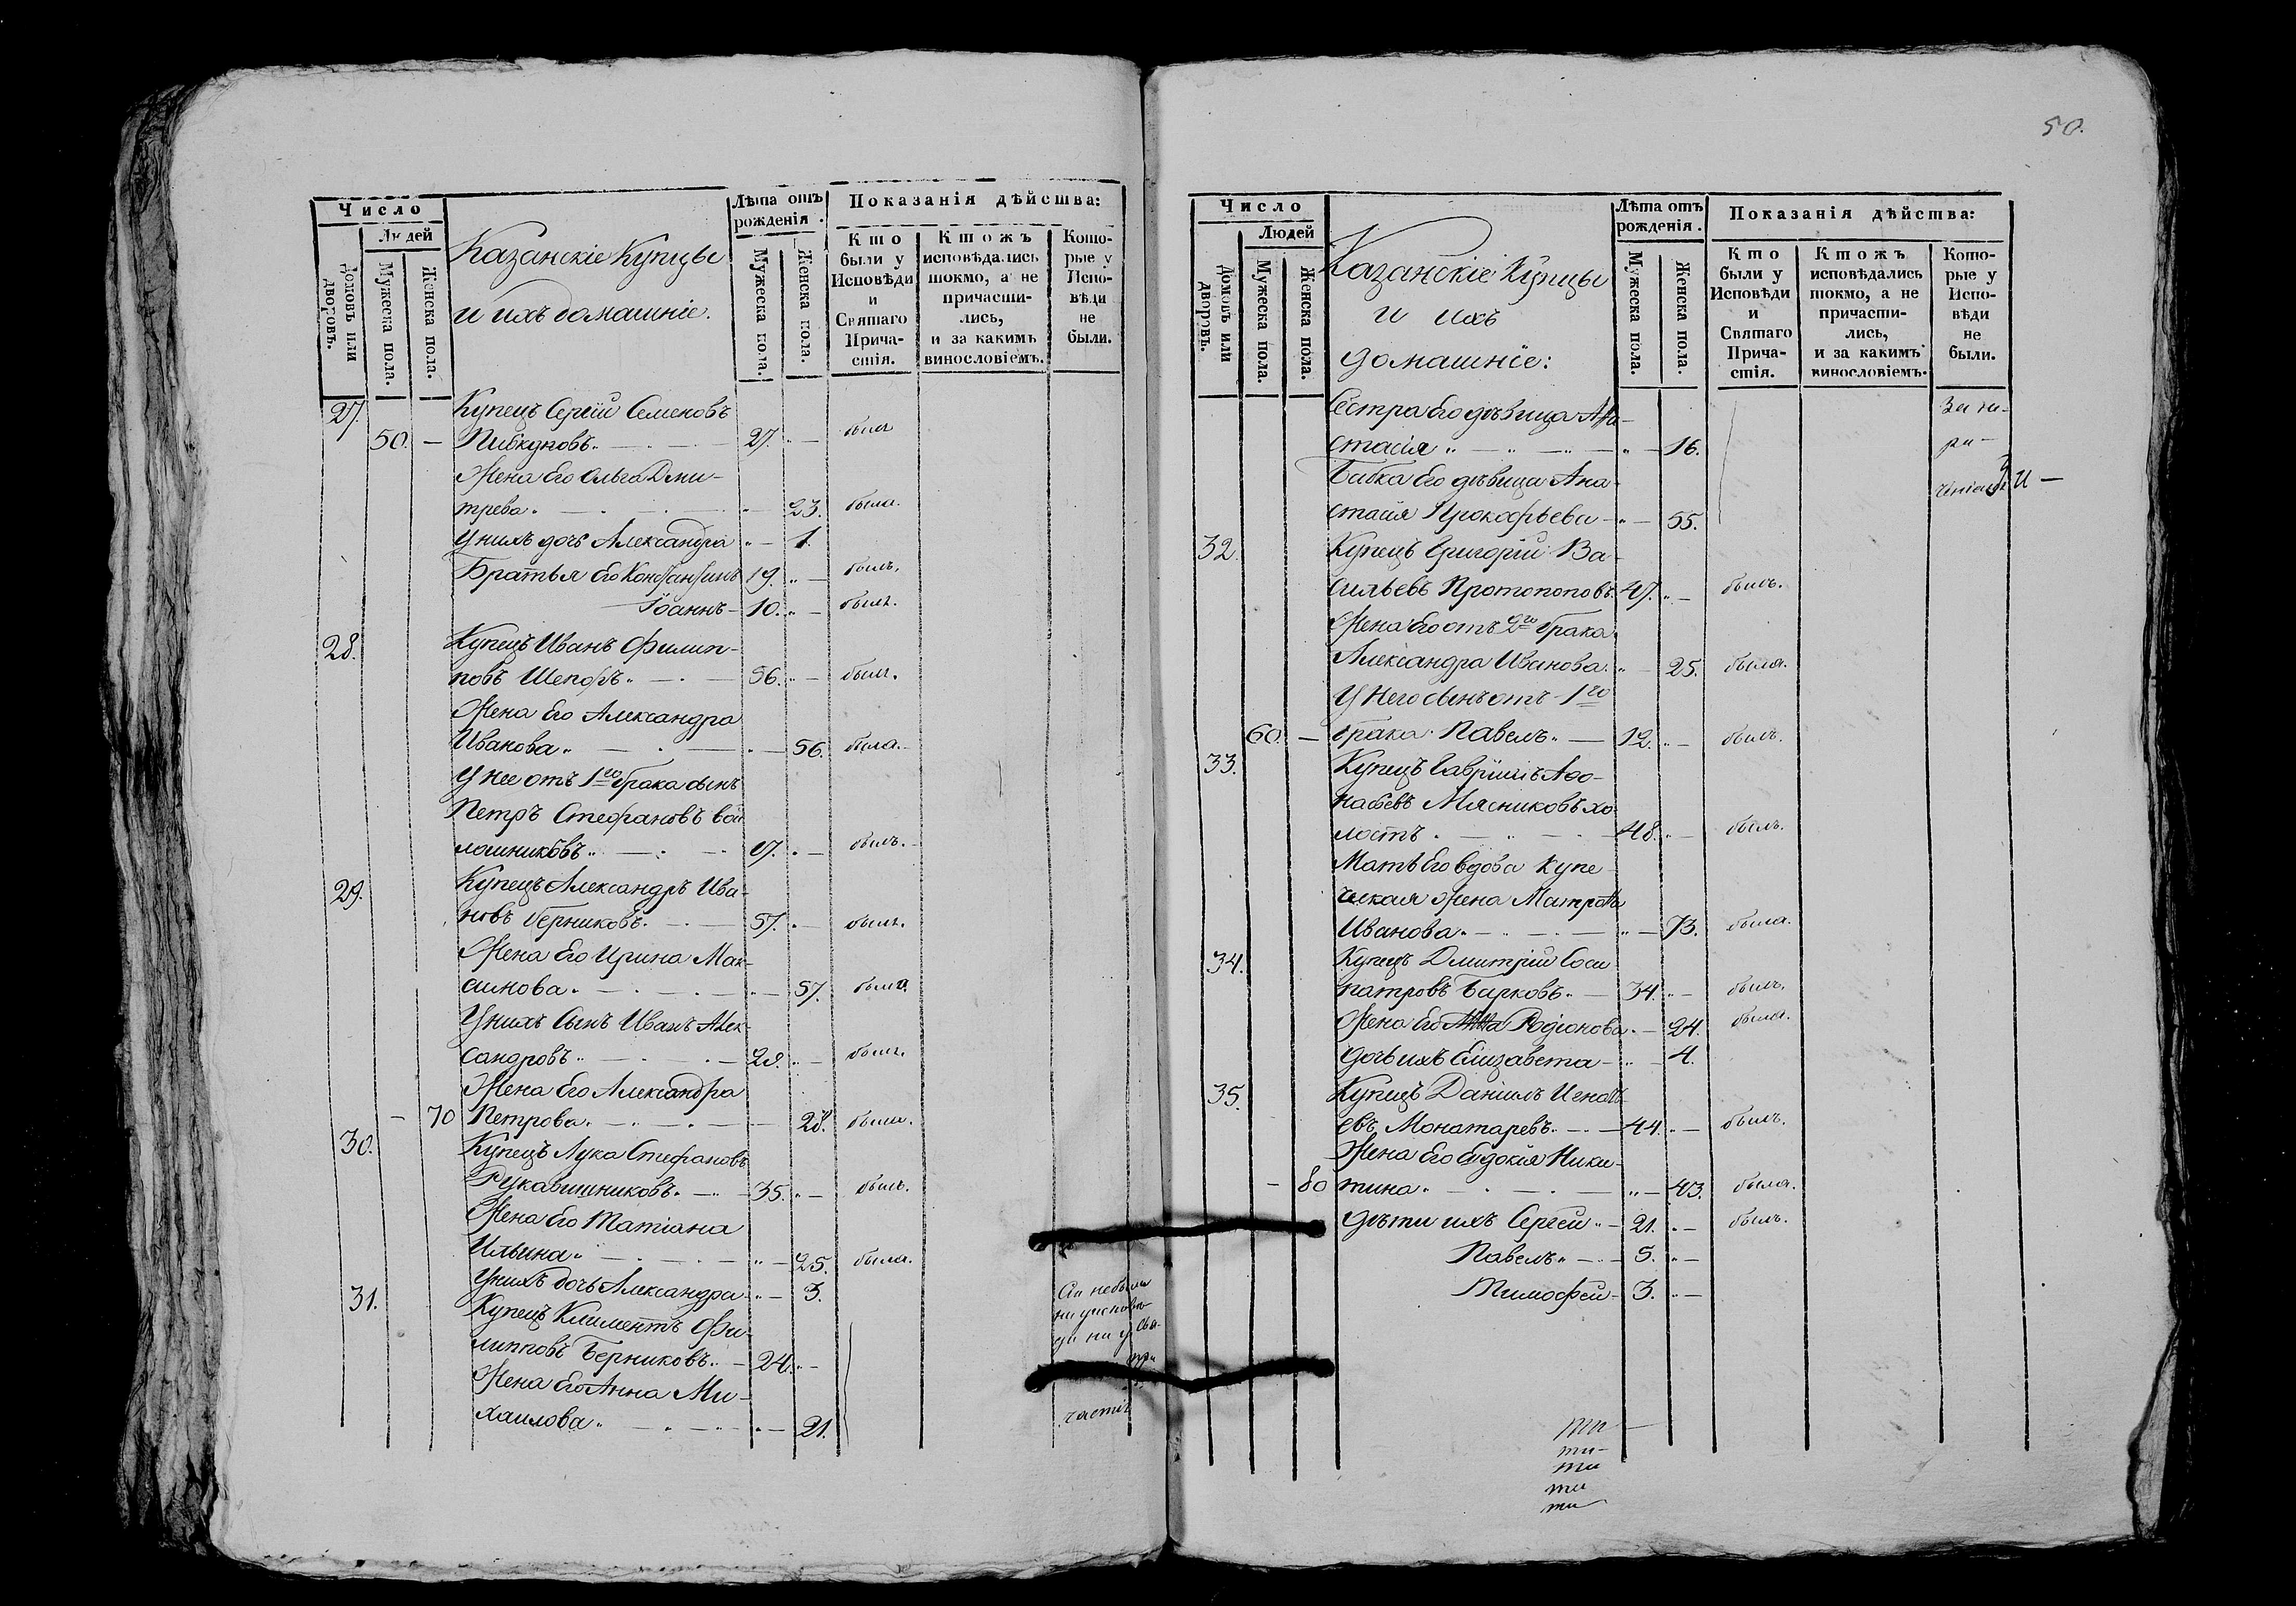 Число
Людей
Домовъ или дворовъ.
Мужеска пола.
Женска пола.
Казанскіе Купцы
и ихъ домашніе.
Лѣта отъ рожденія.
Мужеска пола.
Женска пола.
Показанія дѣйства:
Кто были у Исповѣди и Святаго Причастія.
Ктожъ исповѣдались токмо, а не причастились, и за какимъ винословіемъ.
Которые у Исповѣди не были.
27. Купецъ Сергій Семеновъ
50. — 27. " — былъ
Жена Его Ольга Дми-
трева. — " — 23. была.
У нихъ дочь Александра " — 1.
Братья Его Константинъ 19. " — былъ.
Іоаннъ — 10. " — былъ.
28. Купецъ Иванъ Филип-
повъ — 56. " — былъ.
Жена Его Александра
Иванова. — " — 56. была.
У нее отъ 1го брака сынъ
Петръ Стефановъ вой
лошниковъ. — 17. " — былъ.
29. Купецъ Александръ Ива-
новъ Берниковъ. — 57. " — былъ.
Жена Его Ирина Мак-
симова. — " — 57. была.
У нихъ Сынъ Иванъ Алек-
сандровъ. — 28. " — былъ.
Жена Его Александра
— 70 Петрова. — " — 28. была.
30. Купецъ Лука Стефановъ
Рукавишниковъ. — 35. " — былъ.
Жена Его Татіана
Ильина. — " — 25. была.
У нихъ дочь Александра — " — 3.
31. Купецъ Климентъ Фи-
липповъ Берниковъ. — 24. " —
Жена Его Анна Ми-
хаилова. — " — 21.
Сіи небыли
ни уисповѣ
ди ни у Свя-
при
частія
50.
Число
Людей
Домовъ или дворовъ.
Мужеска пола.
Женска пола.
Казанскіе Купцы
и ихъ
домашніе:
Лѣта отъ рожденія.
Мужеска пола.
Женска пола.
Показанія дѣйства:
Кто были у Исповѣди и Святаго Причастія.
Ктожъ исповѣдались токмо, а не причастились, и за какимъ винословіемъ.
Которые у Исповѣди не были.
Сестра Его дѣвица Ана-
стасія " — " — 16.
Бабка Его дѣвица Ана-
стасія Прокофьева — " — 55.
32. Купецъ Григорій Ва-
сильевъ Протопоповъ. 47. " — былъ.
Жена Его отъ 2го брака
Александра Иванова. " — 25. была.
У Него сынъ отъ 1го
60. — брака Павелъ. — 12. " — былъ.
33. Купецъ Гавріилъ Афо-
насьевъ Мясниковъ хо-
лостъ. — 48. " — былъ.
Мать Его вдова купе-
ческая Жена Матрона
Иванова. — " — 73. была.
34. Купецъ Дмитрій Соси
патровъ Барковъ. — 34. " — былъ.
Жена Его Анна Родіонова. — 24. была.
дочь ихъ Елизавета — " — 4.
35. Купецъ Даніилъ
евъ Монатаревъ. — 44. " — былъ.
Жена Его Евдокія Ники-
— 80 тина. — " — 43. была.
дѣти ихъ Сергей " — 21. " — былъ.
Павелъ. — 5. " —
Тимофей — 3. " —